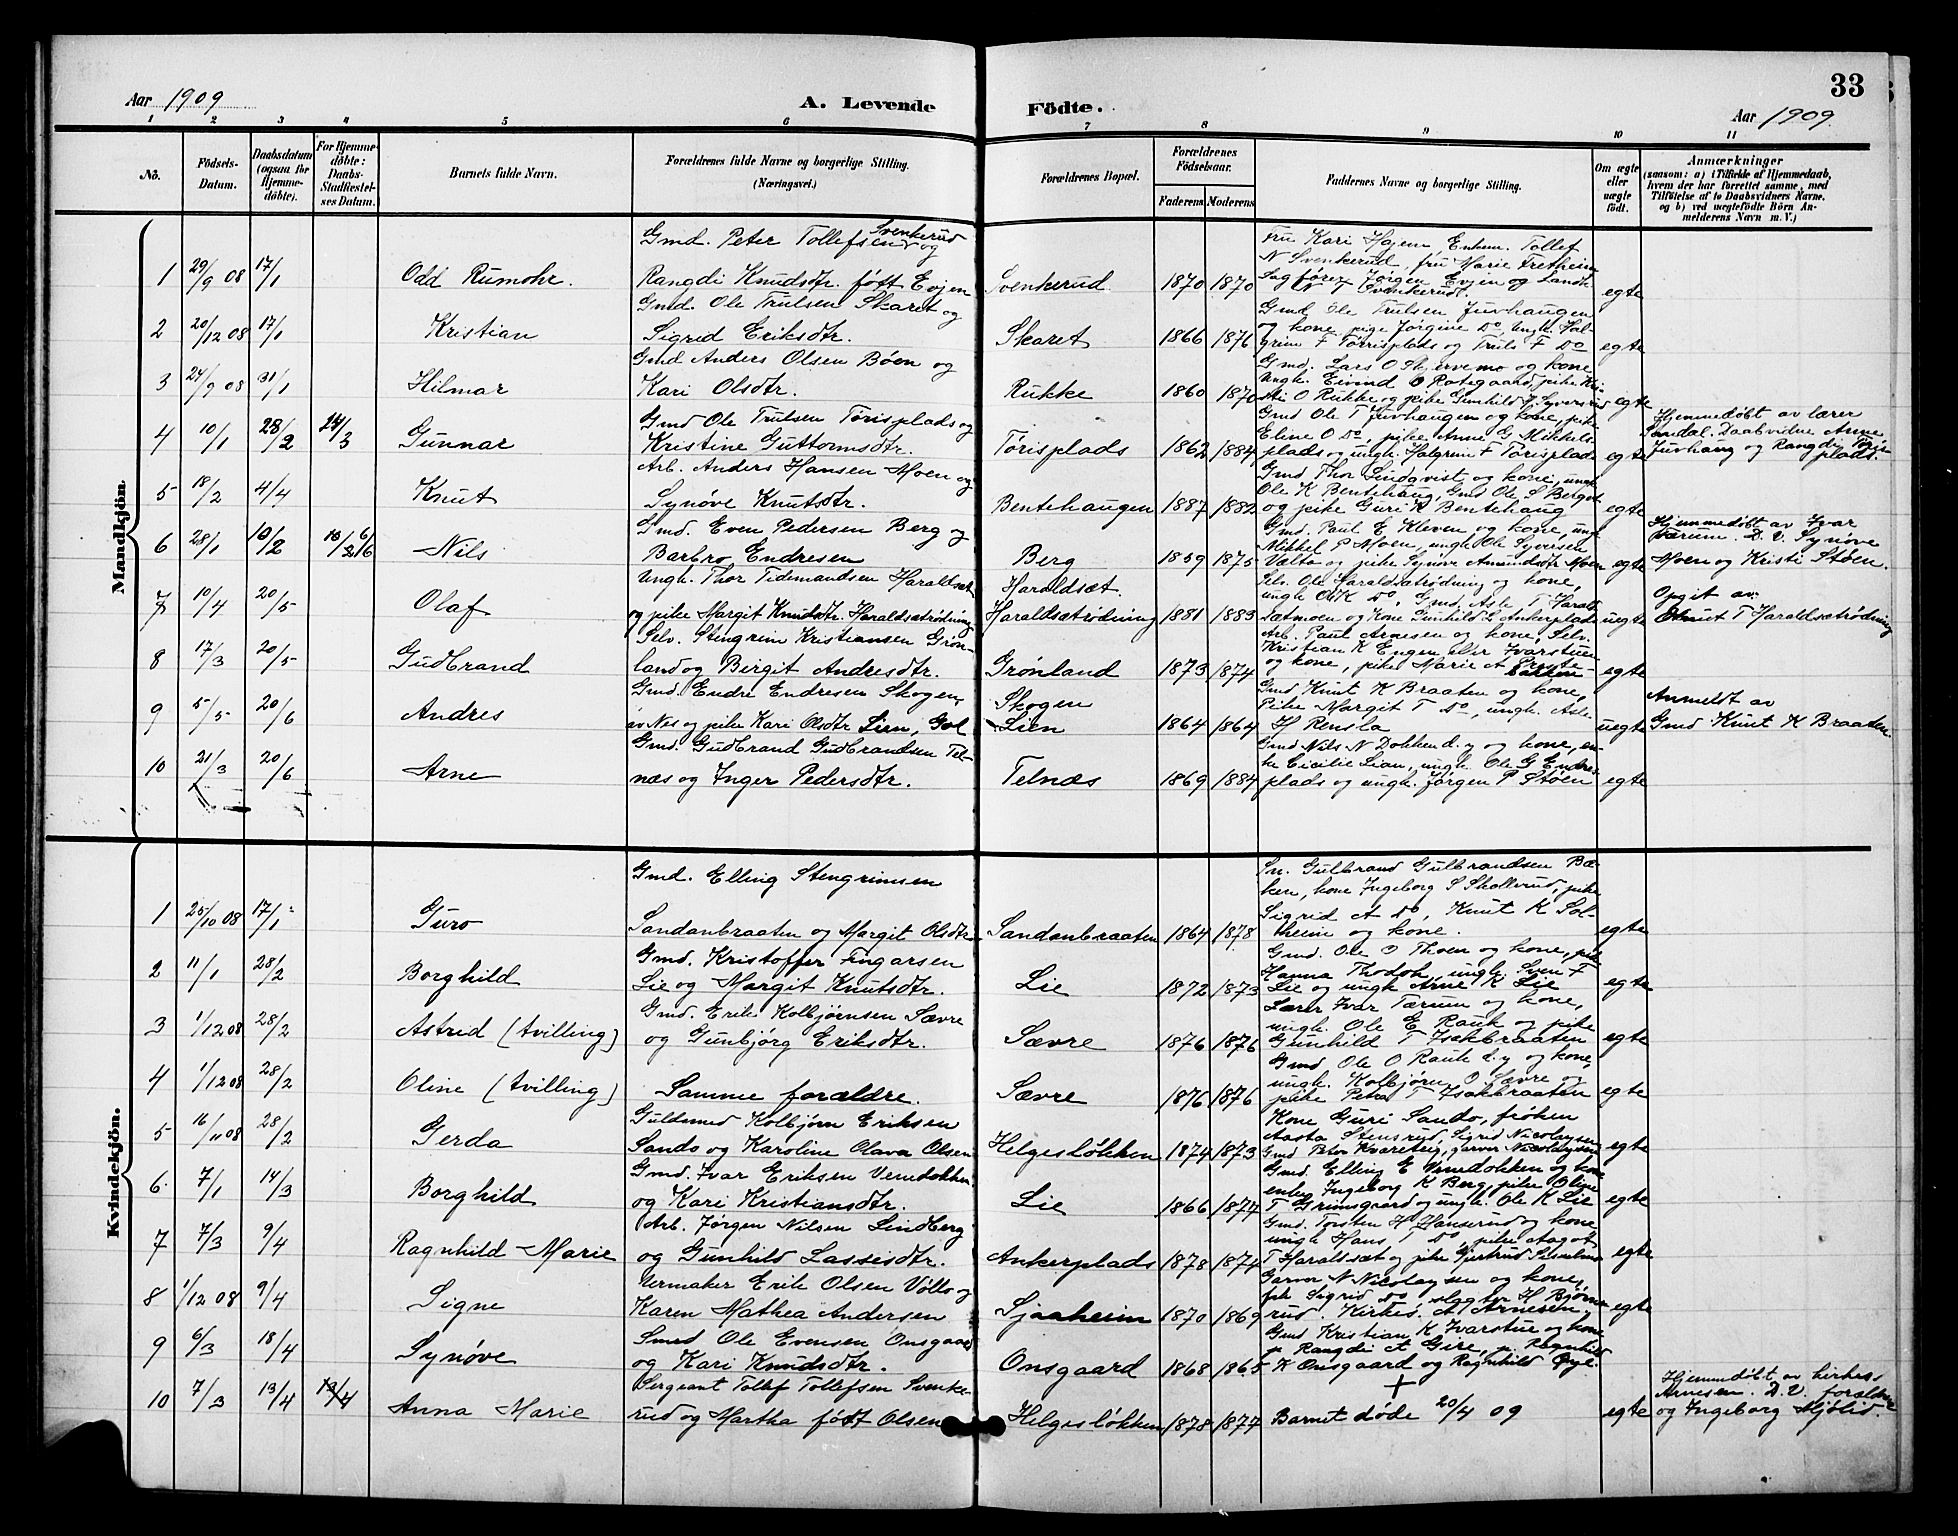 33
Aar 1909 A. Levende Födte. Aar 1909.
1 2 3 4 5 6 7 8 9 10 11
No. Födsels-Datum. Daabsdatum (ogsaa for Hjemmedöbte). For Hjemmedöbte: Daabs-Stadfæstelses Datum. Barnets fulde Navn. Forældrenes fulde Navne og borgerlige Stilling. (Næringsvei.) Forældrenes Bopæl. Forældrenes Födselsaar. Faderens Moderens Faddernes Navne og borgerlige Stilling. Om ægte eller uægte födt. Anmærkninger
(saasom: a) i Tilfælde af Hjemmedaab, hvem der har forrettet samme, med Tilföielse af to Daabsvidners Navne, og b) ved uægtefödte Börn Anmelderens Navn m. V.)
Mandkjön.
Gmd. Peter Tollefsen Svenkerud og
1 29/9 08 17/1 Odd Rumohr. Rangdi Knudsdtr. født Evjen Svenkerud 1870 1870 egte
Fru Kari Hajem, Enkem. Tollef
N Svenkerud, fru Marie Fretheim
Sagfører Jørgen Evjen og Landh.
N T Svenkerud.
Gmd. Ole Trulsen Skaret og
2 20/12 08 17/1 Kristian Sigrid Eriksdtr. Skaret 1866 1876 egte
Gmd Ole Trulsen Juvhaugen
og kone, pige Jørgine Do, ungk. Hal-
grim F Tørrisplads og Truls F Do
Gmd Anders Olsen Bøen og
3 24/9 08 31/1 Hilmar Kari Olsdtr. Rukke 1860 1870 egte
Gmd. Lars O Skjervemo og kone
Ungk. Eivind O Rotegaard, pike Kri-
sti O Rukke og pike Gunhild J. Syversrud
Gmd Ole Trulsen Tørisplads og
4 10/1 28/2 14/3 Gunnar Kristine Guttormsdtr. Tørisplads 1862 1884 egte
Gmd Ole T Juvhaugen og kone, pike
Eline O Do, pike Anne G Mikkels-
plads og ungk. Halgrim F Tørisplads
Hjemmedøbt av lærer
Sandal. Daabvidne Arne
Juvhaug og Rangdi Tøris-
plads.
Arb. Anders Hansen Moen og
5 18/2 4/4 Knut Synøve Knutsdtr. Bentehaugen 1887 1882 egte
Gmd Thor Lindqvist og kone, ungk
Ole K Bentehaug, Gmd Ole S Berget
og pike Guri K Bentehaug
Gmd. Even Pedersen Berg og
6 28/1 10/2 10/2 6/6 Nils Barbro Endresen Berg 1859 1875 egte
Gmd. Paul E Kleven og kone, ung
Mikkel P Moen, ungk Ole Syversen
Vælta og pike Synøve Amundsdtr Moen
Hjemmedøbt av Ivar
Tærum. D. V. Synøve
Moen og Kristi Støen.
Ungk. Thor Tidemandsen Haraldset
7 10/4 20/5 Olaf og pike Margit Knudsdtr. Haraldsætrødning Haraldsæt. Haraldsætrødning 1881 1883 uegte
Selv. Ole Haraldsætrødning og kone,
ungk O K Do, Gmd. Asle T Harald-
sætmoen og kone Gunhild L Ankerplads
Opgit av
Knut T Haraldsætrødning
Selv. Stengrim Kristiansen Grøn-
8 17/3 20/5 Gudbrand land og Bergit Andresdtr. Grønland 1873 1874 egte
Arb. Paul Arnesen og kone, Selv.
Kristian K Engen eller Ivarstuen
og kone, pike Marie A Grøte-
bakken
Gmd. Endre Endresen Skogen,
9 5/5 20/6 Andres av Nes og pike Kari Olsdtr Lien, Gol Skogen Lien 1864 1864 uegte
Gmd Knut K Braaten og kone,
Pike Margit T Do, ungk. Asle
H Rensla
Anmeldt av
Gmd Knut K Braaten.
Gmd. Gudbrand Gudbrandsen Tel-
10 21/3 20/6 Arne næs og Inger Pedersdtr. Telnæs 1869 1884 egte
Gmd Nils N Dokken d. y og kone, en-
ke Cicilie Lian, ungk. Ole G Endres-
plads og ungk. Jørgen P Støen
Kvindekjön.
Gmd. Elling Stengrimsen
1 25/10 08 17/1 Guro Sandanbraaten og Margit Olsdtr. Sandanbraaten 1864 1878 egte
Sn. Gulbrand Gulbrandsen Bæ-
ken, kone Ingeborg S Skollerud, pike
Sigrid A Do, Knut K Sol-
heim og kone.
Gmd. Kristoffer Fingarsen
2 11/1 28/2 Borghild Lie og Margit Knutsdtr. Lie 1872 1873 egte
Gmd. Ole O Thoen og kone, pik
Hanna Thodok, ungk. Sven F
Lie og ungk Arne K Lie
Gmd. Erik Kolbjørnsen Sævre
3 1/12 08 28/2 Astrid (tvilling) og Gunbjørg Eriksdtr. Sævre 1876 1876 egte
Lærer Ivar Tærum og kone,
ungk. Ole E Rauk og pike
Gunhild T Isakbraaten
4 1/12 08 28/2 Oline (tvilling) Samme forældre. Sævre 1876 1876 egte
Gmd Ole O Rauk d. y og kone,
ungk. Kolbjørn O Sævre og
pike Petra T Isakbraaten
Guldsmed Kolbjørn Eriksen
5 16/11 08 28/2 Gerda Sando og Karoline Olava Olsen Helgesløkken 1874 1873 egte
Kone Guri Sando, frøken
Aasta Stensrud, Sigrid Nicolaysen
Gmd Peder Kvarteig, garver Nicolaysen
Gmd. Ivar Eriksen Venedokken
6 7/1 14/3 Borghild og Kari Kristiansdtr. Lie 1866 1874 egte
Gmd. Elling E Venedokken og kone
enke Ingeborg K Berg, pike Oline
T Grimsgaard og ungk. Ole K Lie
Arb. Jørgen Nilsen Lindberg
7 7/3 9/4 Ragnhild Marie og Gunhild Lasseisdtr. Ankerplads 1878 1874 egte
Gmd. Torsten H Hanserud og kone
ungk Hans T Do, pike Aagot
T Haraldsæt og pike Gjertrud
Urmaker Erik Olsen Vøllo og
8 1/12 08 9/4 Signe Karen Mathea Andersen Sjaaheim 1870 1869 egte
Garver N Nicolaysen og kone,
frk Sigrid Do slagter H Bjørne-
rud. Kirkes. A Arnesen.
Smed Ole Evensen Onsgaard
9 6/3 18/4 Synøve og Kari Knudsdtr. Onsgaard 1868 1865 egte
Gmd Kristian K Ivarstue og kone
p. Rangdi A Gire, p. Ragnhild
K Onsgaard og Ragnhild Øyl.
Sergeant Tollef Tollefsen Svenke
10 7/3 13/4 13/4 Anna Marie rud og Martha født Olsen Helgesløkken 1878 1877 Barnet døde 20/4 09 egte
Hjemmedøbt av kirkes
Arnesen. D. V. forældre
og Ingeborg Mjølid.